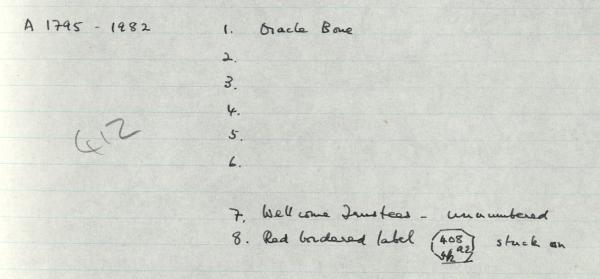 A 1795 - 1982 1. Oracle Bone
2.
3.
4.
412
5.
6.
7. Wellcome Trustees - unnumbered
8. Red bordered label 408 stuck on